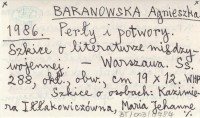 BARANOWSKA Agnieszka
1986. Perły i potwory.
Szkice o literaturze między-
wojennej. – Warszawa. Ss.
288, okł., obw., cm 19 x 12. WHP
Szkice o osobach: Kazimie-
ra Iłłakowiczówna, Maria Jehanne